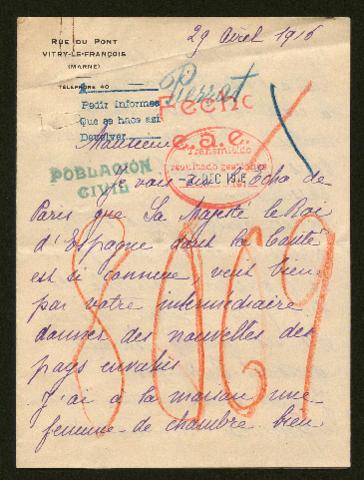 RUE DU PONT
VITRY-LE-FRANÇOIS
(MARNE)
TÉLÉPHONE 40
29 avril 1916
Pierrot
Pedir informes
Que se hace así
Devolver
Fecho
e.a.e.
Transmitido
resultado gestiones
2 DEC 1916
POBLACIÓN
CIVIL
Monsieur
Je vois dans l'Echo de
Paris que Sa Majesté le Roi
d'Espagne dont la bonté
est si connue veut bien
par votre intermédiaire
donner des nouvelles des
pays envahis
J'ai à la maison une
femme de chambre bien
8069